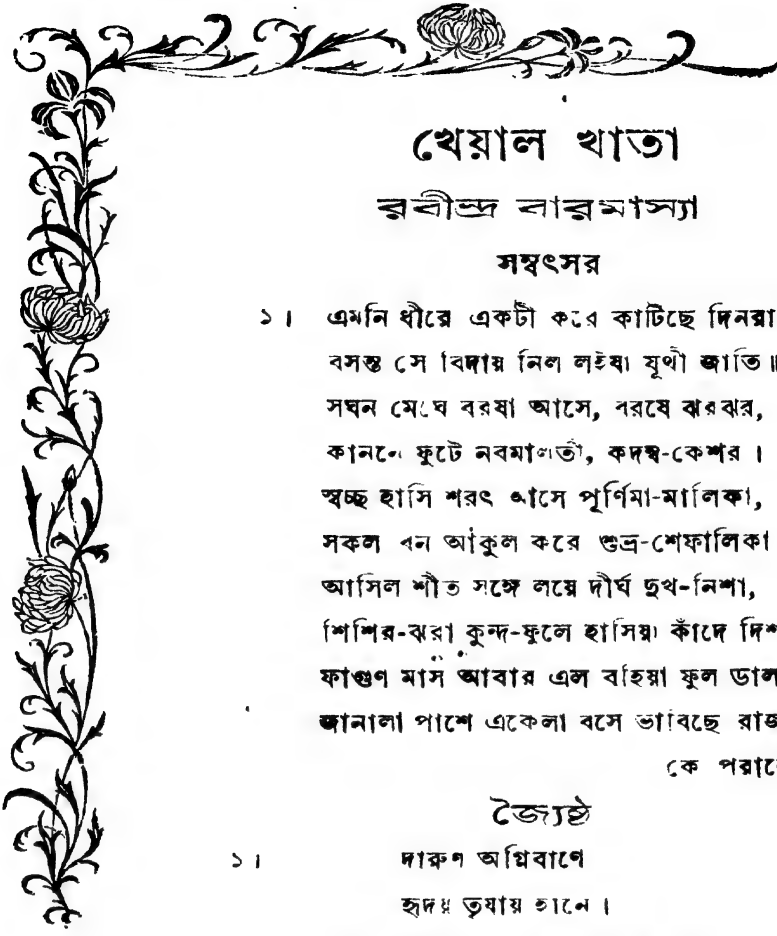 খেয়াল খাতা
রবীন্দ্র বারমাস্যা
সম্বৎসর
১। এমনি ধীরে একটী করে কাটিছে দিনরা
বসন্ত সে বিদায় নিল লইয়া যূথী জাতি॥
সঘন মেঘে বরষা আসে, বরষে ঝরঝর,
কাননে ফুটে নবমালতী, কদম্ব-কেশর।
স্বচ্ছ হাসি শরৎ আসে পূর্ণিমা-মালিকা,
সকল বন আকুল করে শুভ্র-শেফালিকা
আসিল শীত সঙ্গে লয়ে দীর্ঘ দুখ-নিশা,
শিশির-ঝরা কুন্দ-ফুলে হাসিয়া কাঁদে দিশ
ফাগুণ মাস আবার এল বহিয়া ফুল ডাল
জানালা পাশে একেলা বসে ভাবিছে রাজ
কে পরাবে
জ্যৈষ্ঠ
১। দারুণ অগ্নিবাণে
হৃদয় তৃষায় হানে।